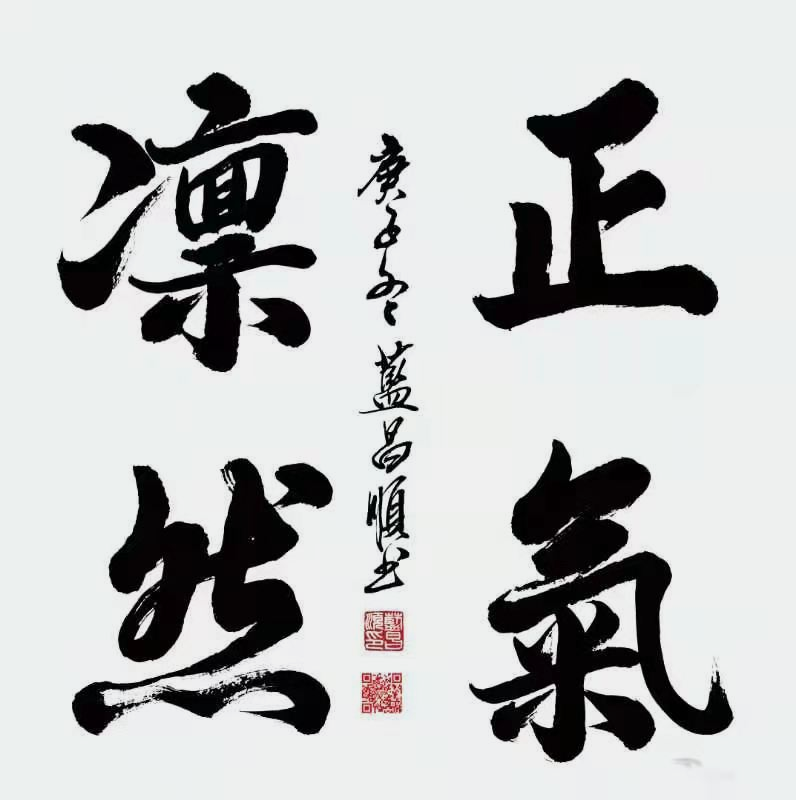 正氣
凜然
庚子冬藍昌順书